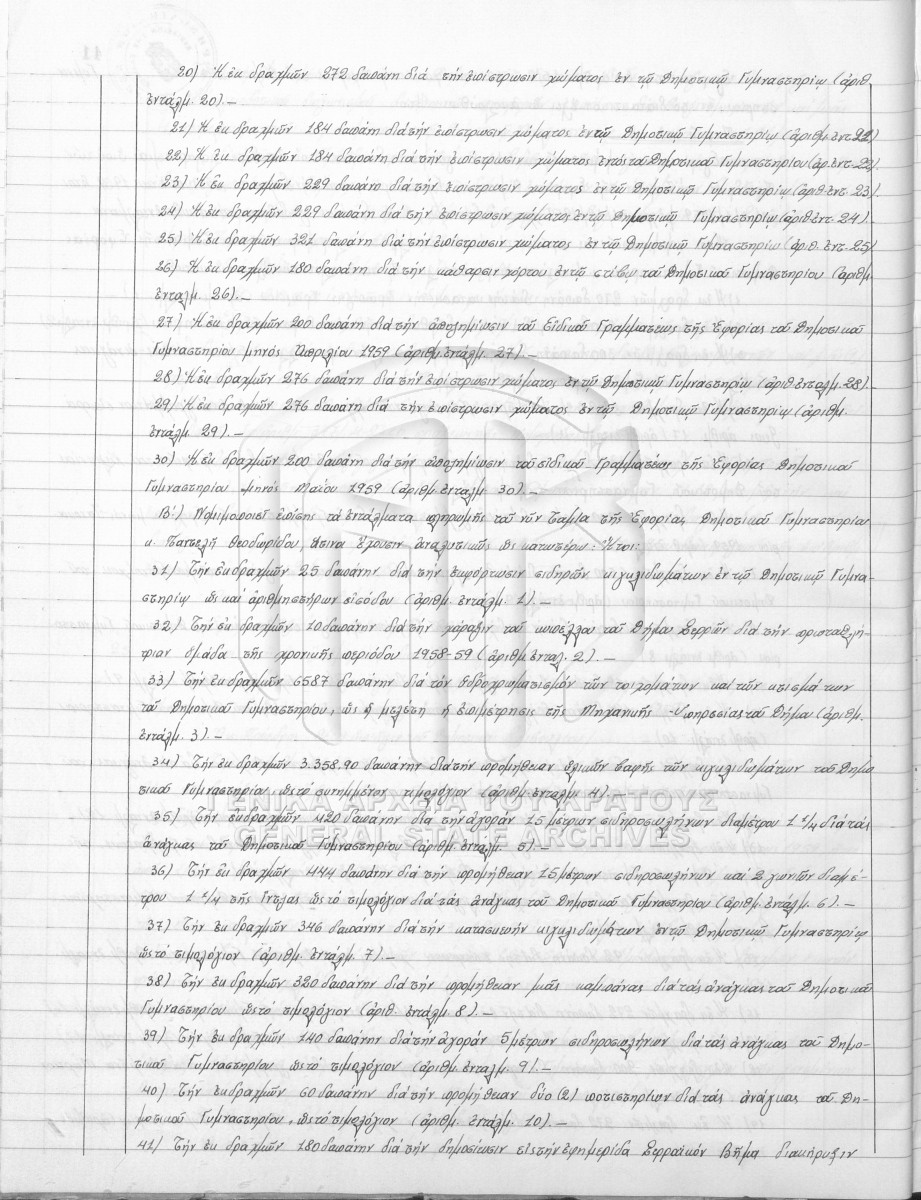 20) Ἡ ἐκ δραχμῶν 272 δαπάνη διὰ τὴν ἐπίστρωσιν χώματος ἐν τῷ Δημοτικῷ Γυμναστηρίῳ (ἀριθ.
ἐντάλμ. 20).–
21) Ἡ ἐκ δραχμῶν 184 δαπάνη διὰ τὴν ἐπίστρωσιν χώματος ἐν τῷ Δημοτικῷ Γυμναστηρίῳ (ἀριθμ. ἐντ. 21)
22) Ἡ ἐκ δραχμῶν 184 δαπάνη διὰ τὴν ἐπίστρωσιν χώματος ἐντὸς τοῦ Δημοτικοῦ Γυμναστηρίου (ἀρ. ἐντ. 22).
23) Ἡ ἐκ δραχμῶν 229 δαπάνη διὰ τὴν ἐπίστρωσιν χώματος ἐν τῷ Δημοτικῷ Γυμναστηρίῳ (ἀριθ. ἐντ. 23)
24) Ἡ ἐκ δραχμῶν 229 δαπάνη διὰ τὴν ἐπίστρωσιν χώματος ἐν τῷ Δημοτικῷ Γυμναστηρίῳ (ἀριθ. ἐντ. 24).
25) Ἡ ἐκ δραχμῶν 321 δαπάνη διὰ τὴν ἐπίστρωσιν χώματος ἐν τῷ Δημοτικῷ Γυμναστηρίῳ (ἀριθ. ἐντ. 25)
26) Ἡ ἐκ δραχμῶν 180 δαπάνη διὰ τὴν κάθαρσιν χόρτου ἐν τῷ στίβῳ τοῦ Δημοτικοῦ Γυμναστηρίου (ἀριθμ.
ἐντάλμ. 26).–
27) Ἡ ἐκ δραχμῶν 200 δαπάνη διὰ τὴν ἀποζημίωσιν τοῦ Εἰδικοῦ Γραμματέως τῆς Ἐφορίας τοῦ Δημοτικοῦ
Γυμναστηρίου μηνὸς Ἀπριλίου 1959 (ἀριθμ. ἐντάλμ. 27).–
28) Ἡ ἐκ δραχμῶν 276 δαπάνη διὰ τὴν ἐπίστρωσιν χώματος ἐν τῷ Δημοτικῷ Γυμναστηρίῳ (ἀριθ. ἐνταλμ. 28).
29) Ἡ ἐκ δραχμῶν 276 δαπάνη διὰ τὴν ἐπίστρωσιν χώματος ἐν τῷ Δημοτικῷ Γυμναστηρίῳ (ἀριθμ.
ἐντάλμ. 29).–
30) Ἡ ἐκ δραχμῶν 200 δαπάνη διὰ τὴν ἀποζημίωσιν τοῦ εἰδικοῦ Γραμματέως τῆς Ἐφορίας Δημοτικοῦ
Γυμναστηρίου μηνὸς Μαΐου 1959 (ἀριθμ. ἐνταλμ. 30).–
Β΄) Νομιμοποιεῖ ἐπίσης τὰ ἐντάλματα πληρωμῆς τοῦ νῦν Ταμία τῆς Ἐφορίας Δημοτικοῦ Γυμναστηρίου
κ. Παντελῆ Θεοδωρίδου, ἅτινα ἔχουσιν ἀναλυτικῶς ὡς κατωτέρω: Ἤτοι:
31) Τὴν ἐκ δραχμῶν 25 δαπάνην διὰ τὴν ἐκφόρτωσιν σιδηρῶν κιγκλιδωμάτων ἐν τῷ Δημοτικῷ Γυμνα-
στηρίῳ ὡς καὶ ἀριθμητήρων εἰσόδου (ἀριθμ. ἐντάλμ. 1).–
32) Τὴν ἐκ δραχμῶν 10 δαπάνην διὰ τὴν χάραξιν τοῦ κυπέλλου τοῦ Δήμου Σερρῶν διὰ τὴν πρωταθλή-
τριαν ὁμάδα τῆς χρονικῆς περιόδου 1958-59 (ἀριθμ. ἐνταλ. 2).–
33) Τὴν ἐκ δραχμῶν 6587 δαπάνην διὰ τὸν ὑδροχρωματισμὸν τῶν τοιχωμάτων καὶ τῶν κτισμάτων
τοῦ Δημοτικοῦ Γυμναστηρίου, ὡς ἡ μελέτη ἡ ἐπιμέτρησις τῆς Μηχανικῆς Ὑπηρεσίας τοῦ Δήμου (ἀριθμ.
ἐντάλμ. 3).–
34) Τὴν ἐκ δραχμῶν 3.358.90 δαπάνην διὰ τὴν προμήθειαν ὑλικῶν βαφῆς τῶν κιγκλιδωμάτων τοῦ Δημο
τικοῦ Γυμναστηρίου, ὡς τὸ συνημμένον τιμολόγιον (ἀριθμ. ἐνταλμ. 4).–
ΓΕΝΙΚΑ ΑΡΧΕΙΑ ΤΟΥ ΚΡΑΤΟΥΣ
35) Τὴν ἐκ δραχμῶν 420 δαπάνην διὰ τὴν ἀγορὰν 15 μέτρων σιδηροσωλήνων διαμέτρου 1 1/4 διὰ τὰς
GENERAL STATE ARCHIVES
ἀνάγκας τοῦ Δημοτικοῦ Γυμναστηρίου (ἀριθμ. ἐνταλμ. 5).–
36) Τὴν ἐκ δραχμῶν 444 δαπάνην διὰ τὴν προμήθειαν 15 μέτρων σιδηροσωλήνων καὶ 2 γωνιῶν διαμέ-
τρου 1 1/4 τῆς ἴντζας ὡς τὸ τιμολόγιον διὰ τὰς ἀνάγκας τοῦ Δημοτικοῦ Γυμναστηρίου (ἀριθμ. ἐντάλμ. 6).–
37) Τὴν ἐκ δραχμῶν 346 δαπάνην διὰ τὴν κατασκευὴν κιγκλιδωμάτων ἐν τῷ Δημοτικῷ Γυμναστηρίῳ
ὡς τὸ τιμολόγιον (ἀριθμ. ἐντάλμ. 7).–
38) Τὴν ἐκ δραχμῶν 320 δαπάνην διὰ τὴν προμήθειαν μιᾶς καμπάνας διὰ τὰς ἀνάγκας τοῦ Δημοτικοῦ
Γυμναστηρίου ὡς τὸ τιμολόγιον (ἀριθ. ἐντάλμ. 8).–
39) Τὴν ἐκ δραχμῶν 140 δαπάνην διὰ τὴν ἀγορὰν 5 μέτρων σιδηροσωλήνων διὰ τὰς ἀνάγκας τοῦ Δημο-
τικοῦ Γυμναστηρίου ὡς τὸ τιμολόγιον (ἀριθμ. ἐνταλμ. 9).–
40) Τὴν ἐκ δραχμῶν 60 δαπάνην διὰ τὴν προμήθειαν δύο (2) ποτιστηρίων διὰ τὰς ἀνάγκας τοῦ Δη-
μοτικοῦ Γυμναστηρίου, ὡς τὸ τιμολόγιον (ἀριθμ. ἐντάλμ. 10).–
41) Τὴν ἐκ δραχμῶν 180 δαπάνην διὰ τὴν δημοσίευσιν εἰς τὴν ἐφημερίδα Σερραϊκὸν Βῆμα διακήρυξιν